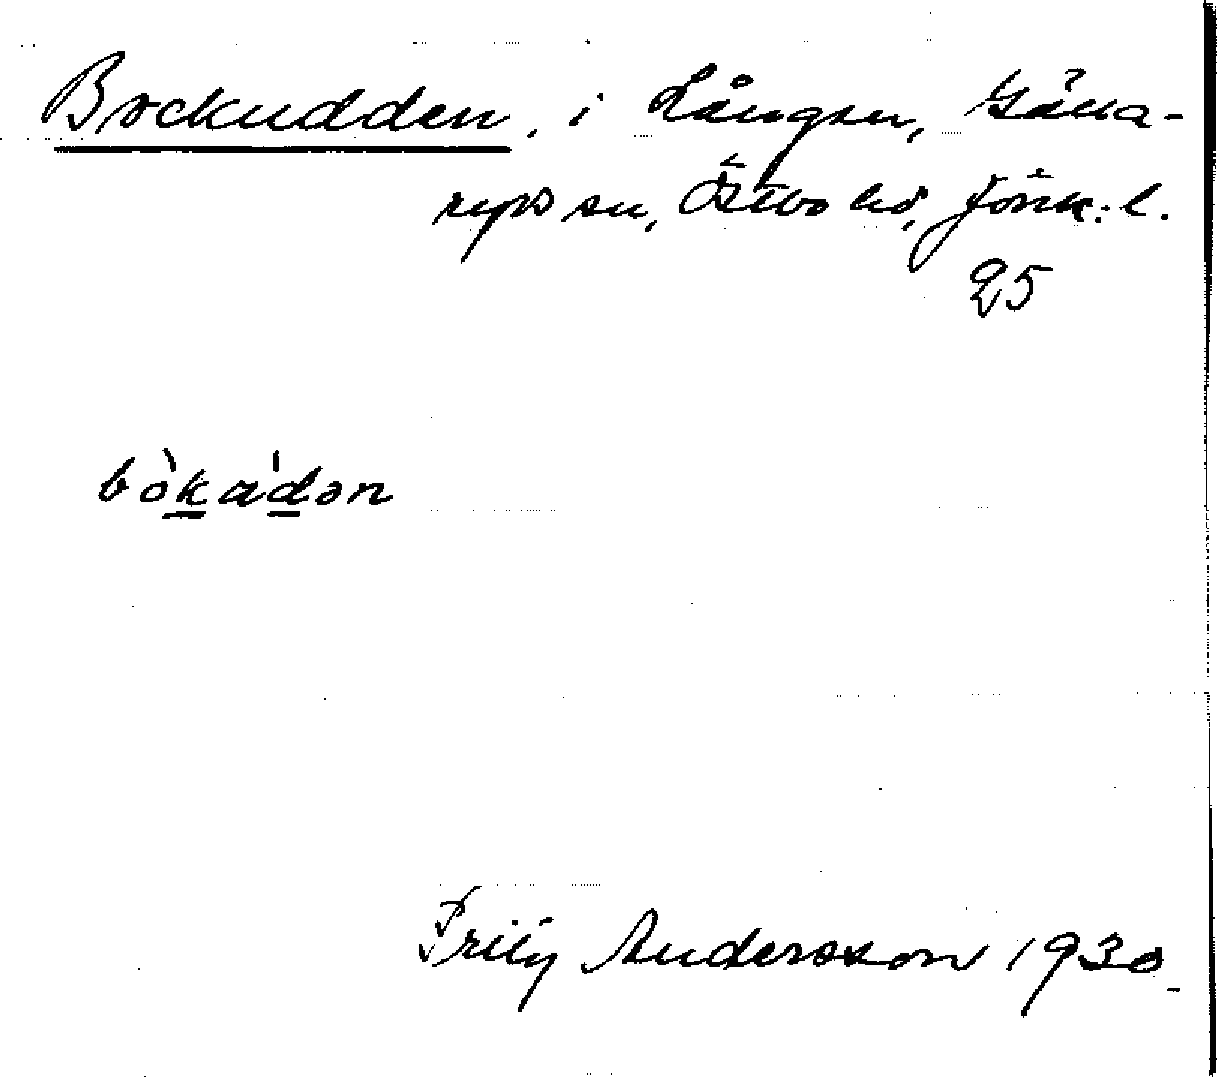 Bockudden, i Långsen, Gälla-
ryds sn, Östbo hd, Jönk: l.
25
bòkádən
Frily Andersson 1930